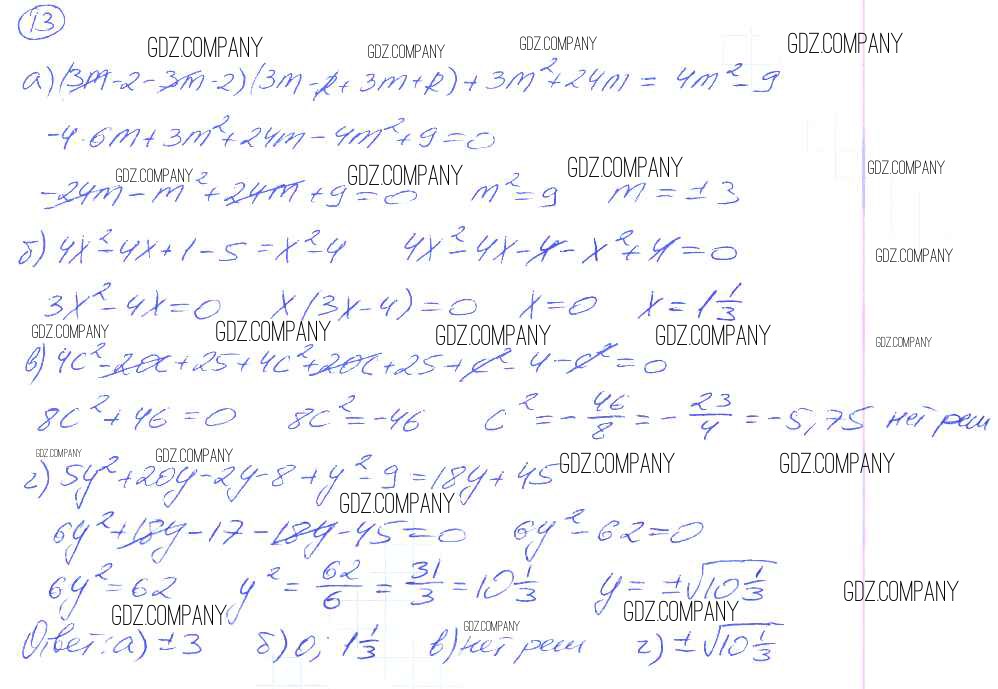 13
GDZ.COMPANY GDZ.COMPANY GDZ.COMPANY GDZ.COMPANY
а) (3m-2-3m-2)(3m-2+3m+2)+3m²+24m = 4m²-9
-4·6m+3m²+24m-4m²+9=0
GDZ.COMPANY GDZ.COMPANY GDZ.COMPANY GDZ.COMPANY
-24m-m²+24m+9=0 m²=9 m=±3
б) 4x²-4x+1-5=x²-4 4x²-4x-4-x²+4=0
GDZ.COMPANY
3x²-4x=0 x(3x-4)=0 x=0 x=1 1/3
GDZ.COMPANY GDZ.COMPANY GDZ.COMPANY GDZ.COMPANY GDZ.COMPANY
в) 4c²-20c+25+4c²+20c+25+c²-4-c²=0
8c²+46=0 8c²=-46 c²=-46/8=-23/4=-5,75 нет реш
GDZ.COMPANY GDZ.COMPANY GDZ.COMPANY GDZ.COMPANY
г) 5y²+20y-2y-8+y²-9=18y+45
GDZ.COMPANY
6y²+18y-17-18y-45=0 6y²-62=0
6y²=62 y²=62/6=31/3=10 1/3 y=±√10 1/3
GDZ.COMPANY GDZ.COMPANY GDZ.COMPANY GDZ.COMPANY
Ответ: а) ±3 б) 0; 1 1/3 в) нет реш г) ±√10 1/3